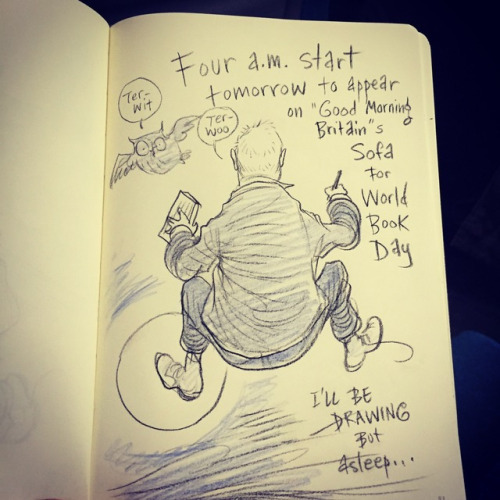 Four a.m. start
tomorrow to appear
on "Good Morning
Britain"s
Sofa
for
World
Book
Day
Ter-
wit
Ter-
woo
I'LL BE
DRAWING
BUT
asleep...